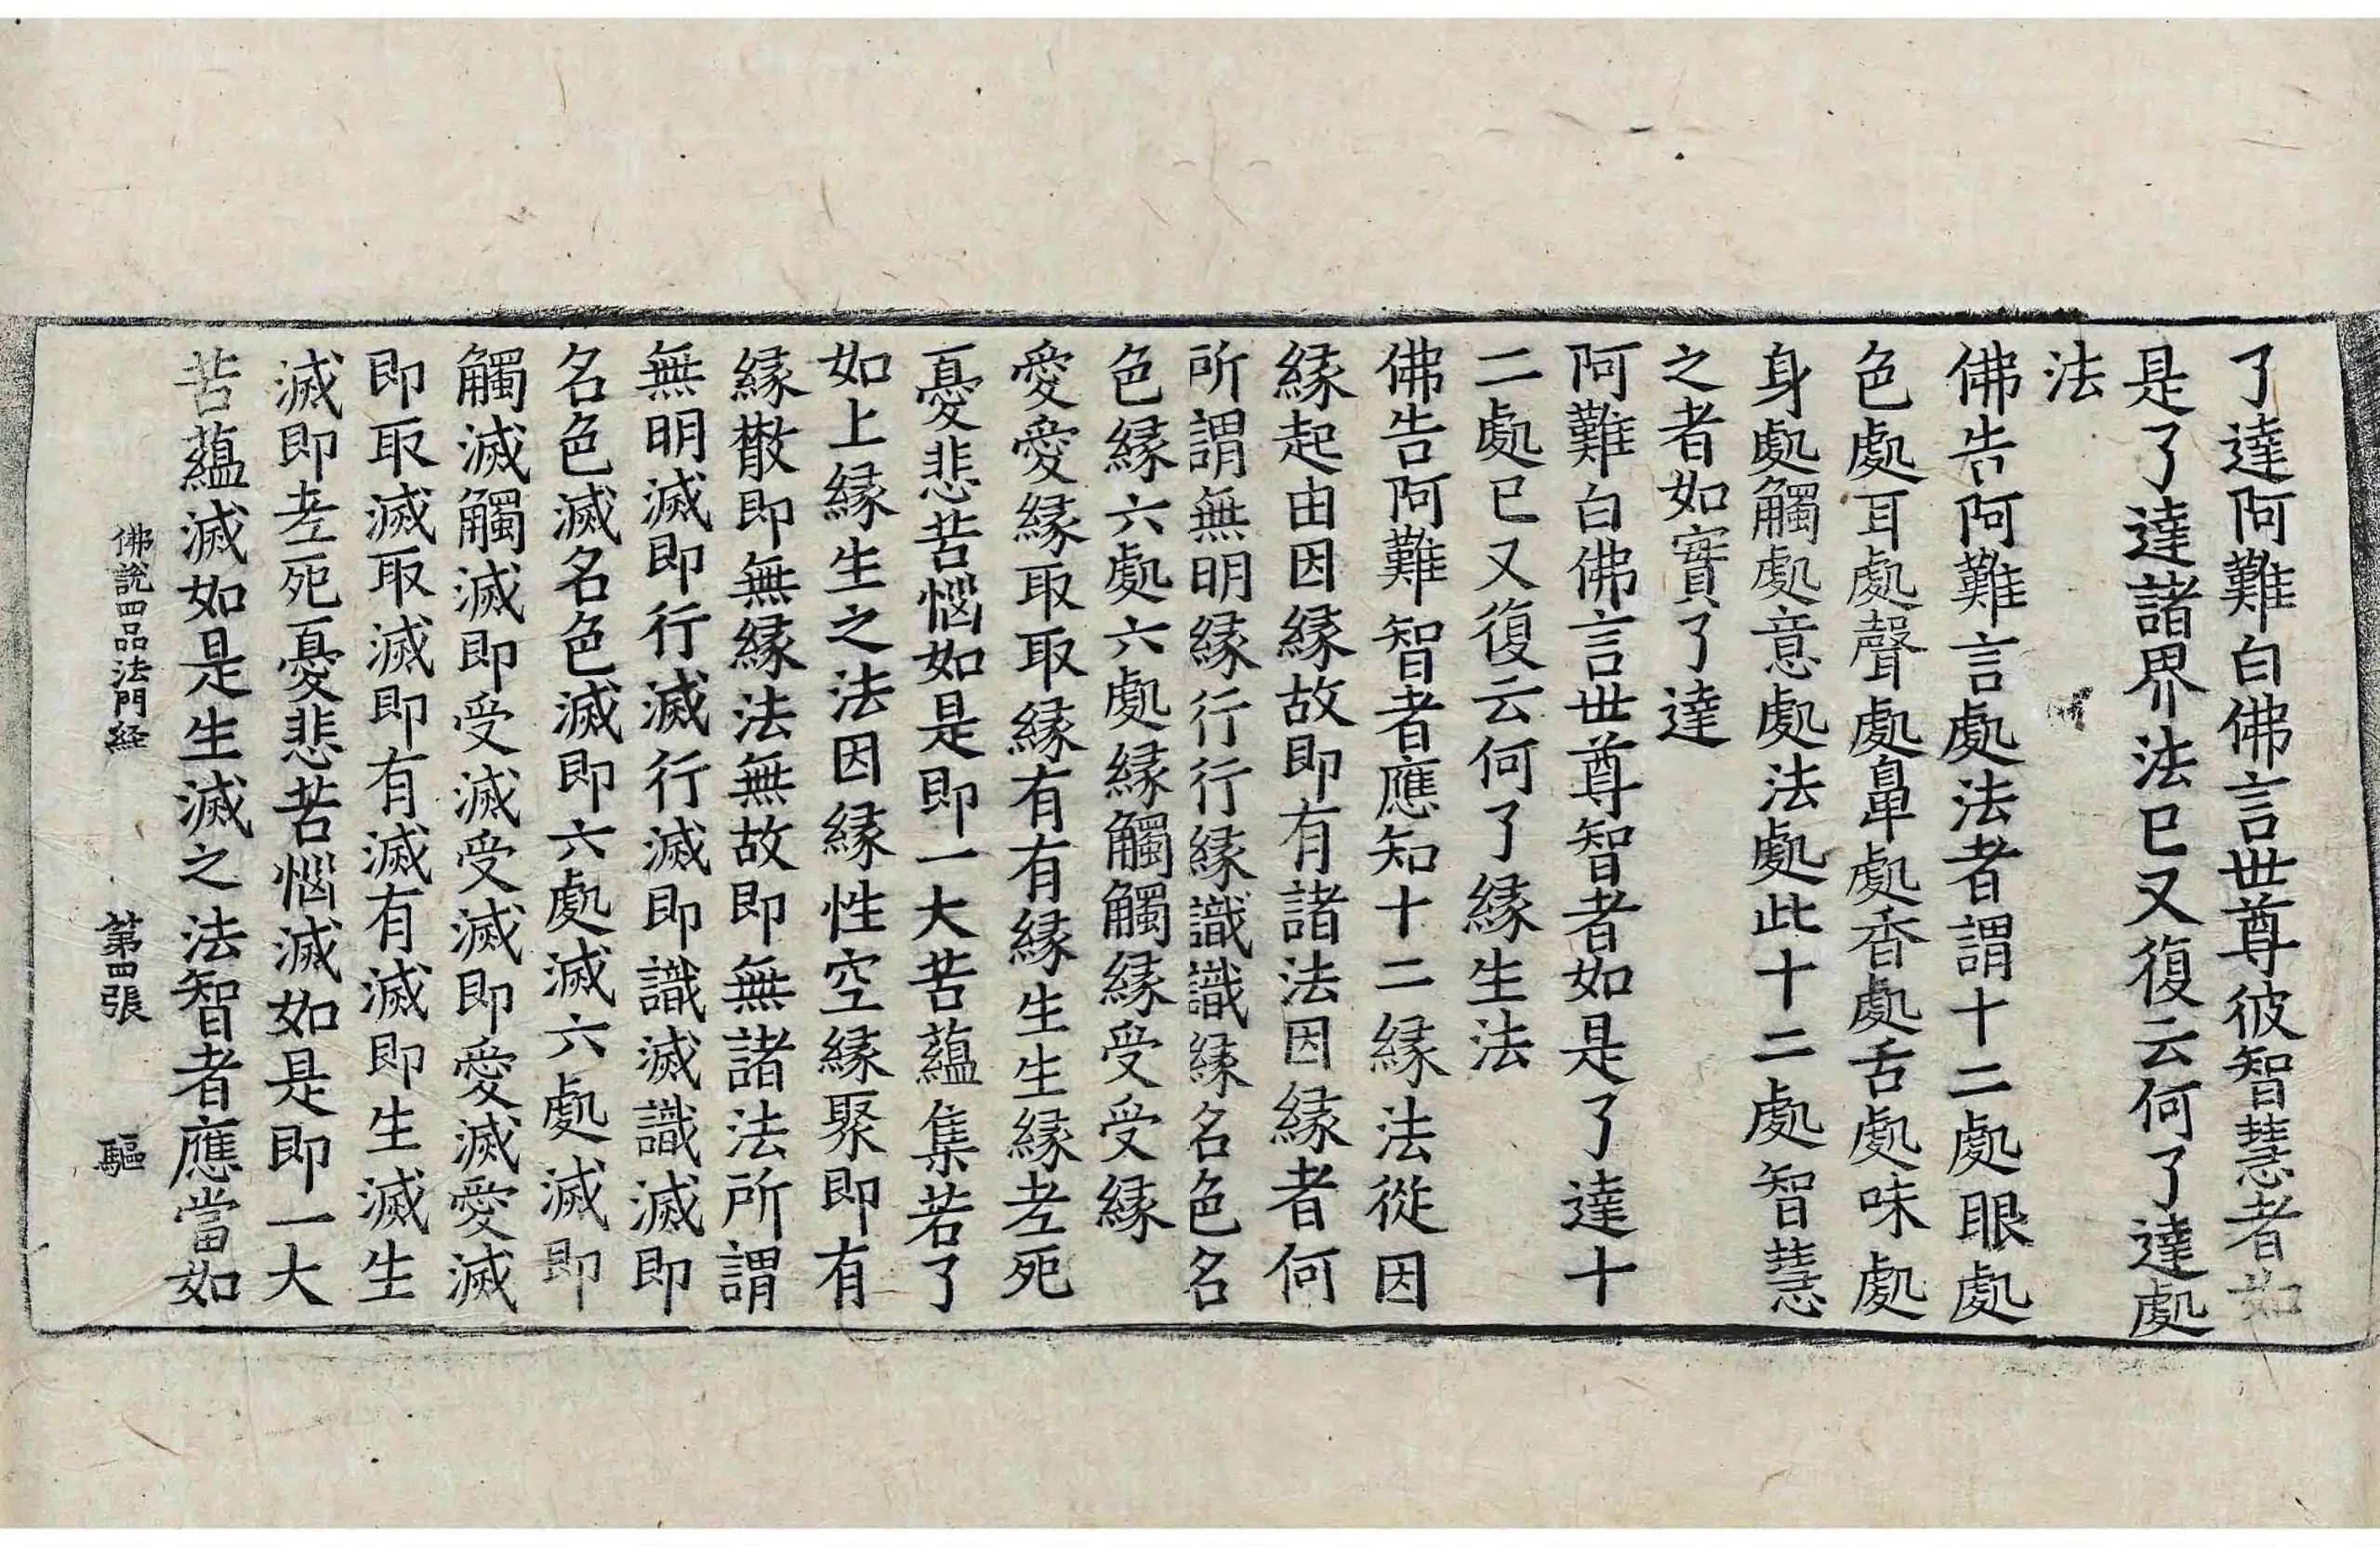 了達阿難白佛言世尊彼智慧者如
是了達諸界法已又復云何了達處
法
佛告阿難言處法者謂十二處眼處
色處耳處聲處鼻處香處舌處味處
身處觸處意處法處此十二處智慧
之者如實了達
阿難白佛言世尊智者如是了達十
二處已又復云何了緣生法
佛告阿難智者應知十二緣法從因
緣起由因緣故即有諸法因緣者何
所謂無明緣行行緣識識緣名色名
色緣六處六處緣觸觸緣受受緣
愛愛緣取取緣有有緣生生緣老死
憂悲苦惱如是即一大苦蘊集若了
如上緣生之法因緣性空緣聚即有
緣散即無緣法無故即無諸法所謂
無明滅即行滅行滅即識滅識滅即
名色滅名色滅即六處滅六處滅即
觸滅觸滅即受滅受滅即愛滅愛滅
即取滅取滅即有滅有滅即生滅生
滅即老死憂悲苦惱滅如是即一大
苦蘊滅如是生滅之法智者應當如
佛說四品法門経 第四張 驅